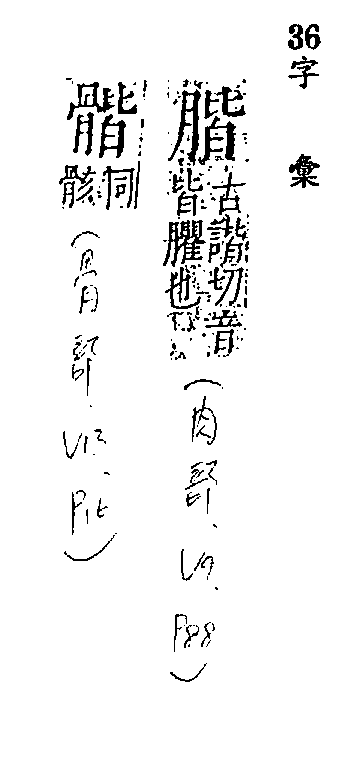 36
字彙
腊 古諧切音
皆臞也
(肉部、V9、P88)
䯔 同
骸
(骨部、V13、P16)